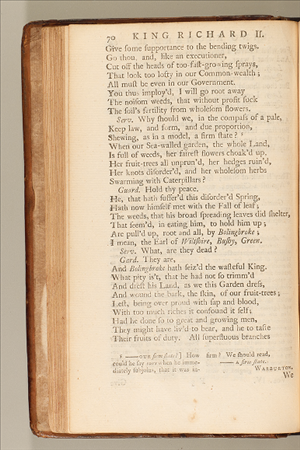 70 KING RICHARD II.
Give some supportance to the bending twigs.
Go thou, and, like an executioner,
Cut off the heads of too-fast-growing sprays,
That look too lofty in our Common-wealth;
All must be even in our Government.
You thus imploy'd, I will go root away
The noisom weeds, that without profit suck
The soil's fertility from wholesom flowers.
Serv. Why should we, in the compass of a pale,
Keep law, and form, and due proportion,
Shewing, as in a model, a firm state?
When our Sea-walled garden, the whole Land,
Is full of weeds, her fairest flowers choak'd up,
Her fruit-trees all unprun'd, her hedges ruin'd,
Her knots disorder'd, and her wholesom herbs
Swarming with Caterpillars?
Gard. Hold thy peace.
He, that hath suffer'd this disorder'd Spring,
Hath now himself met with the Fall of leaf;
The weeds, that his broad spreading leaves did shelter,
That seem'd, in eating him, to hold him up;
Are pull'd up, root and all, by Bolingbroke;
I mean, the Earl of Wiltshire, Bushy, Green.
Serv. What, are they dead?
Gard. They are,
And Bolingbroke hath seiz'd the wasteful King.
What pity is't, that he had not so trimm'd
And drest his Land, as we this Garden dress,
And wound the bark, the skin, of our fruit-trees;
Lest, being over proud with sap and blood,
With too much riches it confound it self;
Had he done so to great and growing men,
They might have liv'd to bear, and he to taste
Their fruits of duty. All superfluous branches
OUR firm state?] How
could he say ours when he immediately
firm? We should read,
a firm state.
WARBURTON.
We